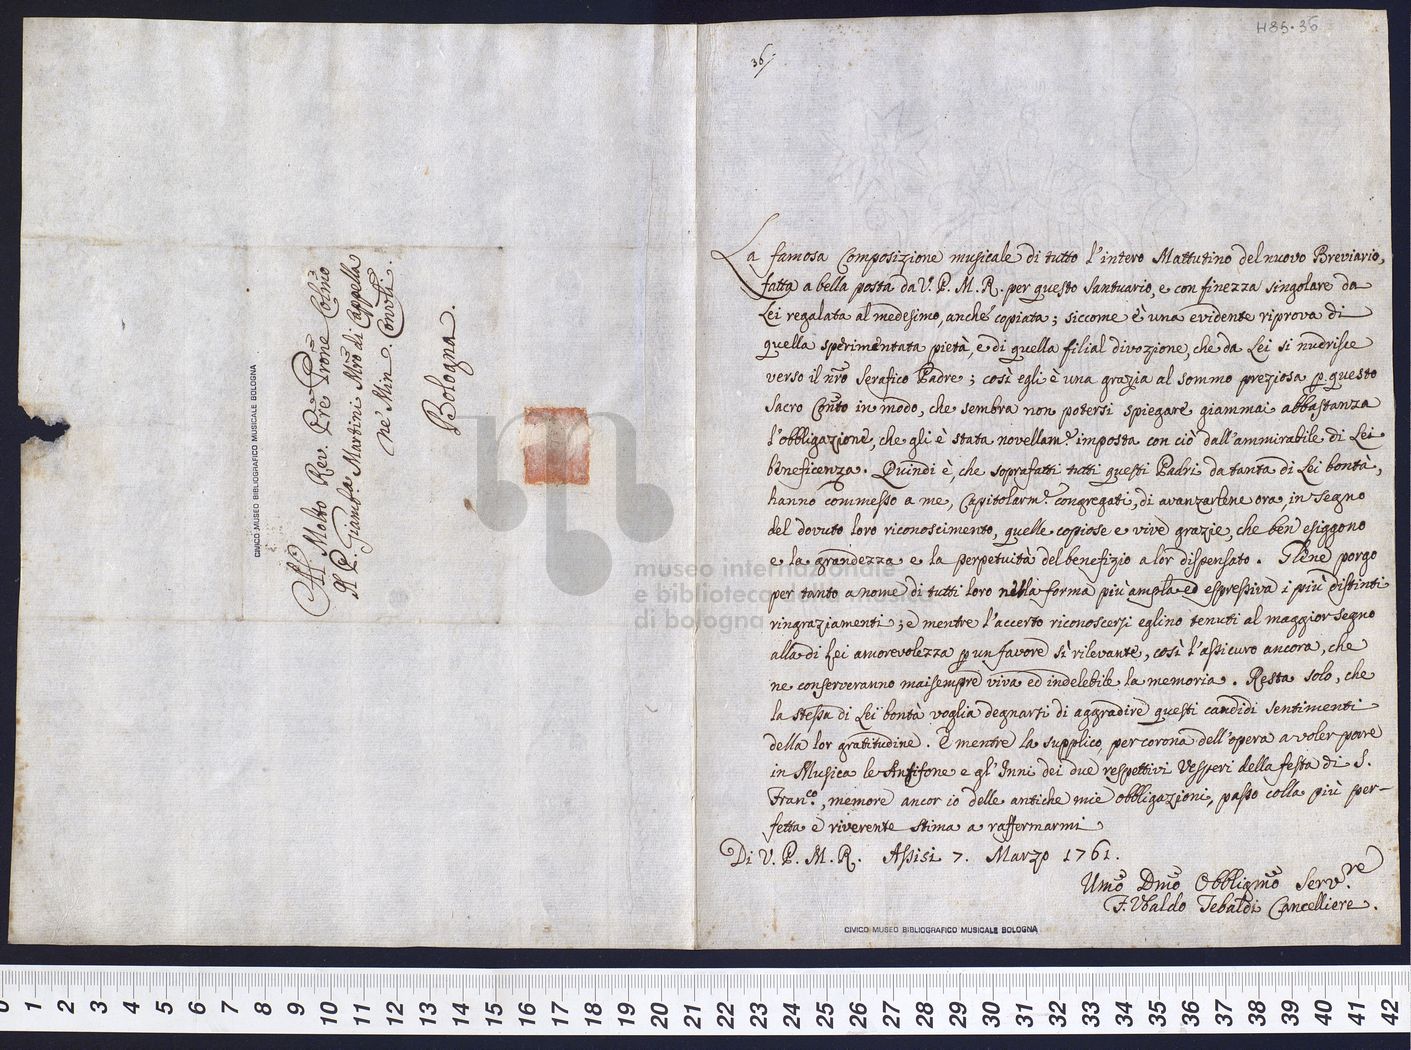 All Molto Rev. Pre Prone Colmo
Il P. Giamba Martini Mro di Cappella
ne Min. Convli.
Bologna.
CIVICO MUSEO BIBLIOGRAFICO MUSICALE BOLOGNA
H85.36
36/
La famosa Composizione musicale di tutto l'intero Mattutino del nuovo Breviario,
fatta a bella posta da V. P. M. R. per questo Santuario, e con finezza singolare da
Lei regalata al medesimo, anche copiata; siccome è una evidente riprova di
quella sperimentata pietà, e di quella filial divozione, che da Lei si nudrisce
verso il nro Serafico Padre; così egli è una grazia al sommo preziosa p questo
Sacro Conto in modo, che sembra non potersi spiegare giammai abbastanza
l'obbligazione, che gli è stata novellam.e imposta con ciò dall'ammirabile di Lei
beneficenza. Quindi è, che soprafatti tutti questi Padri da tanta di Lei bontà,
hanno commesso a me, Capitolarm.e congregati, di avanzarlene ora, in segno
del dovuto loro riconoscimento, quelle copiose e vive grazie, che ben esiggono
e la grandezza e la perpetuità del benefizio a lor dispensato. Gliene porgo
per tanto a nome di tutti loro nella forma più ampla ed espressiva i più distinti
ringraziamenti; e mentre l'accerto riconoscersi eglino tenuti al maggior segno
alla di Lei amorevolezza p un favore sì rilevante, così l'assicuro ancora, che
ne conserveranno maisempre viva ed indelebile la memoria. Resta solo, che
la stessa di Lei bontà voglia degnarsi di aggradire questi candidi sentimenti
della lor gratitudine. E mentre la supplico, per corona dell'opera a voler porre
in Musica le Antifone e gl'Inni dei due respettivi Vesperi della festa di S.
Franc.o, memore ancor io delle antiche mie obbligazioni, passo colla più per-
fetta e riverente stima a raffermarmi
Di V. P. M. R. Assisi 7. Marzo 1761.
Umo Dmo Obbligmo Serv.re
F. Ubaldo Tebaldi Cancelliere.
CIVICO MUSEO BIBLIOGRAFICO MUSICALE BOLOGNA
museo internazionale
e biblioteca della musica
di bologna
0 1 2 3 4 5 6 7 8 9 10 11 12 13 14 15 16 17 18 19 20 21 22 23 24 25 26 27 28 29 30 31 32 33 34 35 36 37 38 39 40 41 42